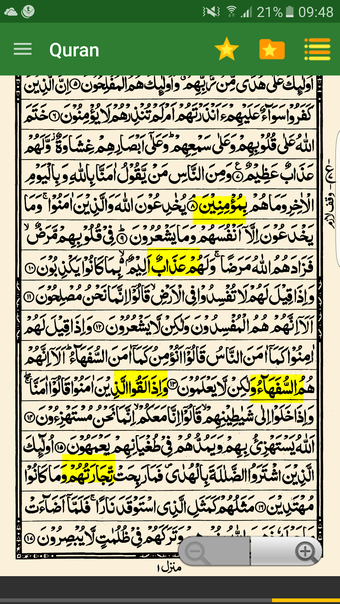 21% 09:48
Quran
اُولٰٓئِكَ عَلٰى هُدًى مِّنْ رَّبِّهِمْ وَاُولٰٓئِكَ هُمُ الْمُفْلِحُوْنَ ۵ اِنَّ الَّذِيْنَ
كَفَرُوْا سَوَآءٌ عَلَيْهِمْ ءَاَنْذَرْتَهُمْ اَمْ لَمْ تُنْذِرْهُمْ لَا يُؤْمِنُوْنَ ۶ خَتَمَ
اللّٰهُ عَلٰى قُلُوْبِهِمْ وَعَلٰى سَمْعِهِمْ وَعَلٰٓى اَبْصَارِهِمْ غِشَاوَةٌ وَّلَهُمْ
عَذَابٌ عَظِيْمٌ ۷ وَمِنَ النَّاسِ مَنْ يَّقُوْلُ اٰمَنَّا بِاللّٰهِ وَبِالْيَوْمِ
الْاٰخِرِ وَمَا هُمْ بِمُؤْمِنِيْنَ ۸ يُخٰدِعُوْنَ اللّٰهَ وَالَّذِيْنَ اٰمَنُوْا وَمَا
يَخْدَعُوْنَ اِلَّآ اَنْفُسَهُمْ وَمَا يَشْعُرُوْنَ ۹ فِيْ قُلُوْبِهِمْ مَّرَضٌ
فَزَادَهُمُ اللّٰهُ مَرَضًا وَلَهُمْ عَذَابٌ اَلِيْمٌ بِمَا كَانُوْا يَكْذِبُوْنَ ۱۰
وَاِذَا قِيْلَ لَهُمْ لَا تُفْسِدُوْا فِي الْاَرْضِ قَالُوْٓا اِنَّمَا نَحْنُ مُصْلِحُوْنَ ۱۱
اَلَآ اِنَّهُمْ هُمُ الْمُفْسِدُوْنَ وَلٰكِنْ لَّا يَشْعُرُوْنَ ۱۲ وَاِذَا قِيْلَ لَهُمْ
اٰمِنُوْا كَمَآ اٰمَنَ النَّاسُ قَالُوْٓا اَنُؤْمِنُ كَمَآ اٰمَنَ السُّفَهَآءُ اَلَآ اِنَّهُمْ
هُمُ السُّفَهَآءُ وَلٰكِنْ لَّا يَعْلَمُوْنَ ۱۳ وَاِذَا لَقُوا الَّذِيْنَ اٰمَنُوْا قَالُوْٓا اٰمَنَّا
وَاِذَا خَلَوْا اِلٰى شَيٰطِيْنِهِمْ قَالُوْٓا اِنَّا مَعَكُمْ اِنَّمَا نَحْنُ مُسْتَهْزِءُوْنَ ۱۴
اَللّٰهُ يَسْتَهْزِئُ بِهِمْ وَيَمُدُّهُمْ فِيْ طُغْيَانِهِمْ يَعْمَهُوْنَ ۱۵ اُولٰٓئِكَ
الَّذِيْنَ اشْتَرَوُا الضَّلٰلَةَ بِالْهُدٰى فَمَا رَبِحَتْ تِّجَارَتُهُمْ وَمَا كَانُوْا
مُهْتَدِيْنَ ۱۶ مَثَلُهُمْ كَمَثَلِ الَّذِي اسْتَوْقَدَ نَارًا فَلَمَّآ اَضَآءَتْ
وَتَرَكَهُمْ فِيْ ظُلُمٰتٍ لَّا يُبْصِرُوْنَ ۱۷
منزل ۱